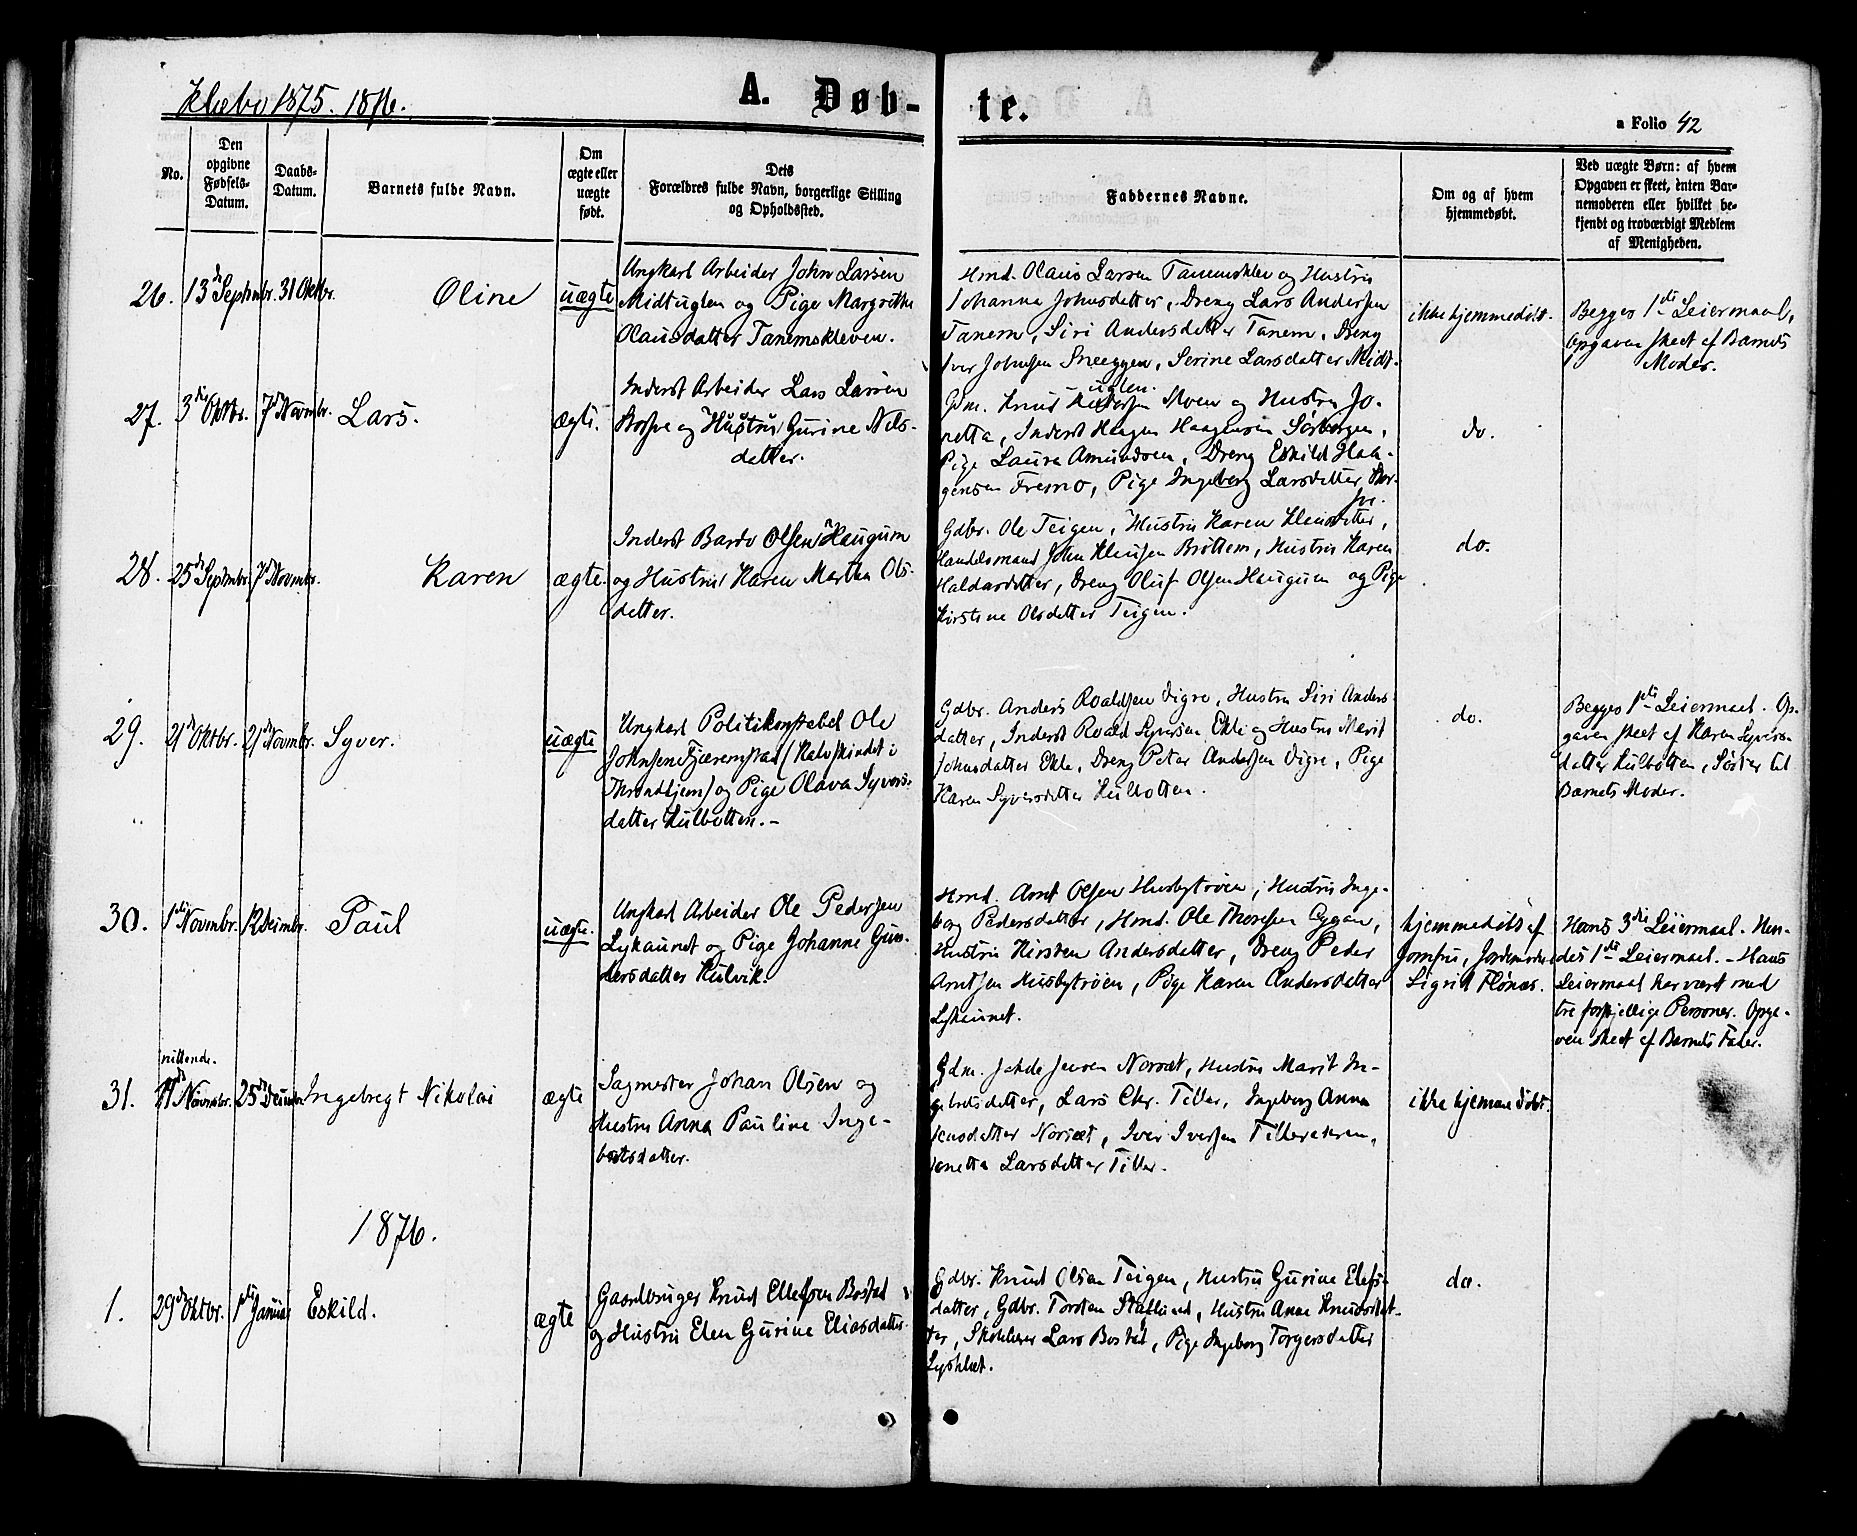 Klæbo 1875. 1876.
A. Døb-
te.
a Folio 42
No.
Den
opgivne
Fødsels-
Datum.
Daabs-
Datum.
Barnets fulde Navn.
Om
ægte eller
uægte
født.
Dets
Forældres fulde Navn, borgerlige Stilling
og Opholdssted.
Faddernes Navne.
Om og af hvem
hjemmedøbt.
Ved uægte Børn: af hvem
Opgaven er skeet, enten Bar-
nemoderen eller hvilket be-
kjendt og troværdigt Medlem
af Menigheden.
26.
13de Septembr.
31 Oktbr.
Oline
uægte
Ungkarl Arbeider John Larsen
Midtuglen og Pige Margrethe
Olausdatter Tanemskleven.
Hmd. Olaus Larsen Tanemsklev og Hustru
Johanna Johnsdatter, Dreng Lars Andersen
Tanem, Siri Andersdatter Tanem, Dreng
Iver Johnsen Sneeggen, Serine Larsdatter Midt-
uglen.
ikke hjemmedøbt.
Begges 1ste Leiermaal,
Opgaven skeet af Barnets
Moder.
27.
3die Oktbr.
7de Novmbr.
Lars.
ægte.
Inderst Arbeider Lars Larsen
og Hustru Gurine Nils-
datter.
Gdm. Knud Moen og Hustru Jo-
netta, Inderst Haagen Haagensen
Pige Laura Amundsen, Dreng Eskild Haa-
gensen Fremo, Pige Ingeborg Larsdatter
do.
28.
25de Septmbr.
7de Novmbr.
Karen
ægte.
Inderst Bardo Olsen Haugum
og Hustru Karen Martha Ols-
datter.
Gdbr. Ole Teigen, Hustru Karen Klausdatter,
Handelsmand John Klausen Brøttem, Hustru Karen
Haldorsdatter, Dreng Oluf Olsen Haugum og Pige
Kirstine Olsdatter Teigen.
do.
29.
21de Oktbr.
21de Novmbr.
Syver.
uægte
Ungkarl Politikonstabel Ole
Johnsen Fjæremstad (Kalvskindet i
Throndhjem) og Pige Olava Syvers-
datter Hulbotten.-
Gdbr. Anders Roaldsen Digre, Hustru Siri Anders-
datter, Inderst Roald Syversen Ekle og Hustru Marit
Johnsdatter Ekle, Dreng Peter Andersen Digre, Pige
Karen Syversdatter Hulbotten.
do.
Begges 1ste Leiermaal. Op-
gaven skeet af Karen Syvers-
datter Hulbotten, Søster til
Barnets Moder.
30.
1ste Novmbr.
12 Desmbr.
Paul
uægte.
Ungkarl Arbeider Ole Pedersen
Lykaunet og Pige Johanne Gun-
dersdatter Hulvik.
Hmd. Arnt Olsen Husbytrøen, Hustru Inge-
borg Pedersdatter, Hmd. Ole Thoresen Eggan,
Hustru Kirsten Andersdatter, Dreng Peder
Arntsen Husbytrøen, Pige Karen Andersdatter
Lykaunet.
hjemmedøbt af
Jomfru, Jordemoder
Sigrid Flønæs.
Hans 3die Leiermaal. Hen-
des 1ste Leiermaal. - Hans
Leiermaal har vært med
tre forskjellige Personer. Opga-
ven skeet af Barnets Fader.
31.
nittende.
19de Novmbr.
25de Desmbr.
Ingebregt Nikolai
ægte
Sagmester Johan Olsen og
Hustru Anna Pauline Inge-
bretsdatter.
Gdm. Jensen Norset, Hustru Marit In-
gebretsdatter, Lars Chr. Tiller, Ingeborg Anna
Jensdatter Norset, Iver Iversen Tillerekren,
Jonetta Larsdatter Tiller.
ikke hjemmedøbt.
1876.
1.
29de Oktbr.
1ste Januar
Eskild.
ægte
Gaardbruger Knud Ellefsen Bostad
og Hustru Elen Gurine Eliasdatter.
Gdbr. Knud Olsen Teigen, Hustru Gurine Elefs-
datter, Gdbr. Torsten Stallund, Hustru Anne Knudsdat-
ter, Skolelærer Lars Bostad, Pige Ingeborg Torgersdatter
Lysklæt.
do.